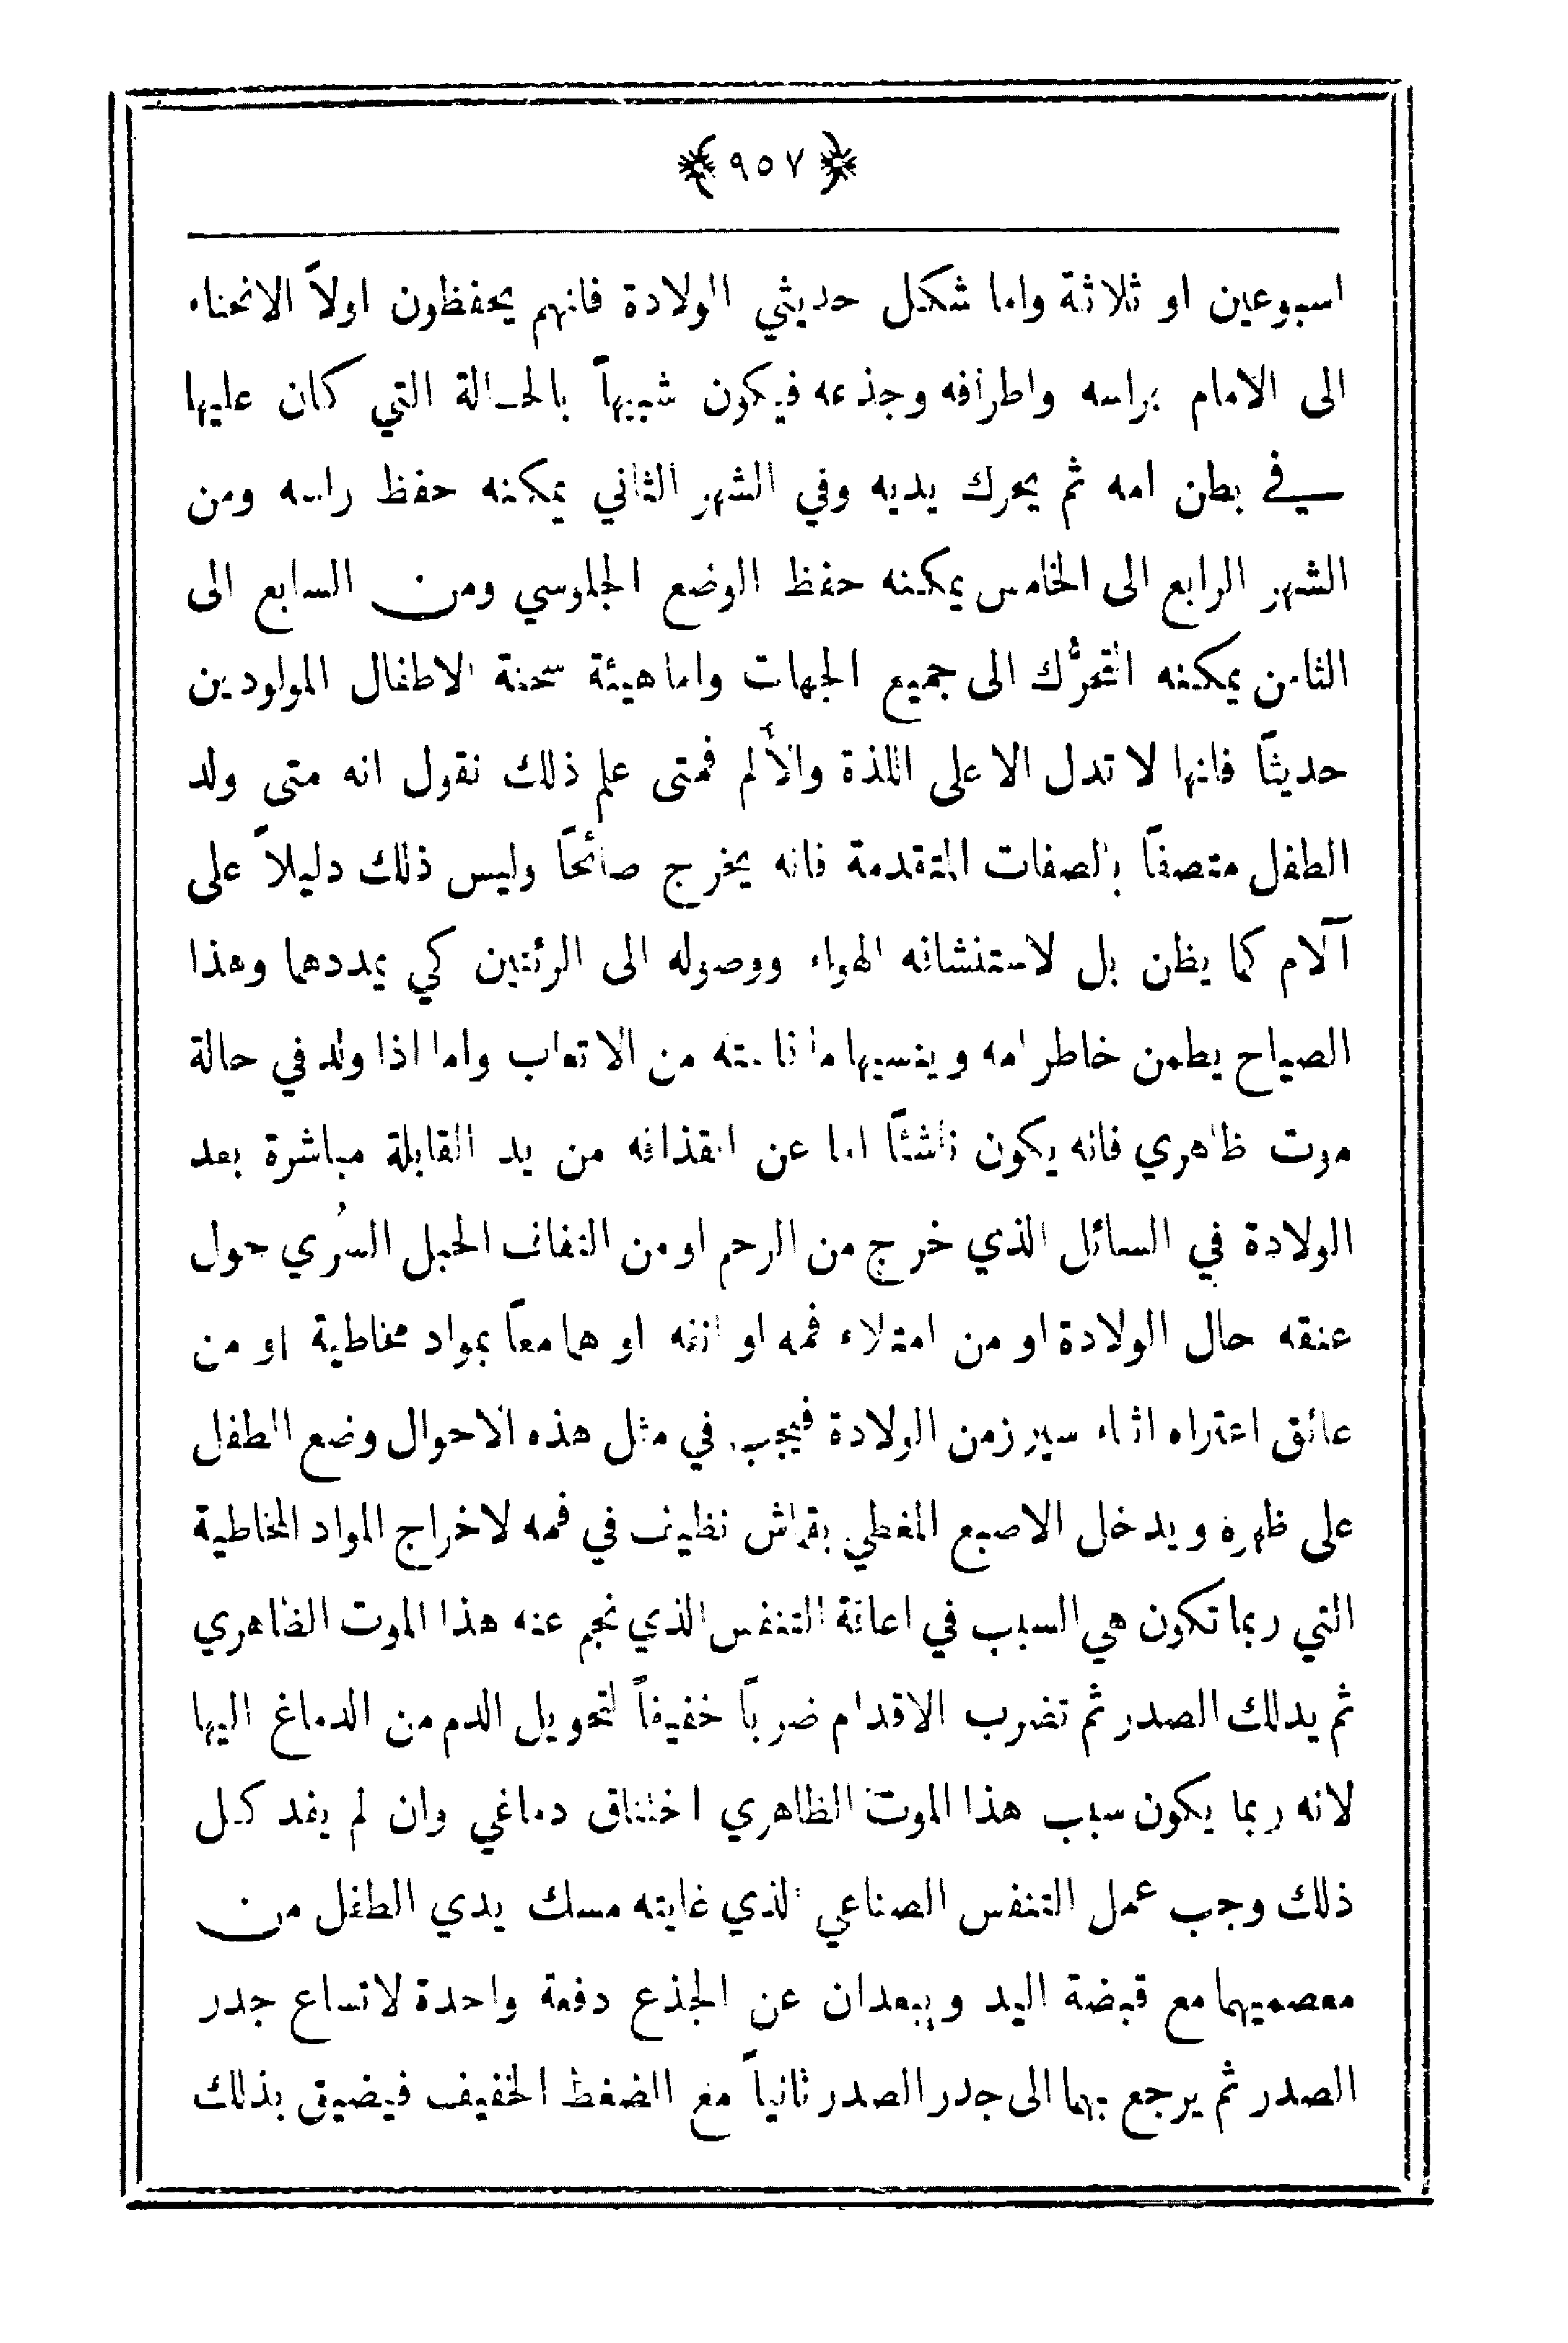 ﴿ ٩٥٧ ﴾
اسبوعين او ثلاثة واما شكل حديثي الولادة فانهم يحفظون اولاً الانحناء
الى الامام براسه واطرافه وجذعه فيكون شبيهاً بالحالة التي كان عليها
في بطن امه ثم يحرك يديه وفي الشهر الثاني يمكنه حفظ راسه ومن
الشهر الرابع الى الخامس يمكنه حفظ الوضع الجلوسي ومن السابع الى
الثامن يمكنه التحرُّك الى جميع الجهات واما هيئة سحنة الاطفال المولودين
حديثاً فانها لا تدل الا على اللذة والأَلم فمتى علم ذلك نقول انه متى ولد
الطفل متصفاً بالصفات المتقدمة فانه يخرج صائحاً وليس ذلك دليلاً على
آلام كما يظن بل لاستنشاقه الهواء ووصوله الى الرئتين كي يمددهما وهذا
الصياح يطمن خاطر امه وينسيها ما قاسته من الاتعاب واما اذا ولد في حالة
موت ظاهري فانه يكون ناشئاً اما عن انقذافه من يد القابلة مباشرة بعد
الولادة في السائل الذي خرج من الرحم او من التفاف الحبل السُري حول
عنقه حال الولادة او من امتلاء فمه او انفه او هما معاً بمواد مخاطية او من
عائق اعتراه اثناء سير زمن الولادة فيجب في مثل هذه الاحوال وضع الطفل
على ظهره ويدخل الاصبع المغطي بقماش نظيف في فمه لاخراج المواد المخاطية
التي ربما تكون هي السبب في اعاقة التنفس الذي نجم عنه هذا الموت الظاهري
ثم يدلك الصدر ثم تضرب الاقدام ضرباً خفيفاً لتحويل الدم من الدماغ اليها
لانه ربما يكون سبب هذا الموت الظاهري اختناق دماغي وان لم يفد كل
ذلك وجب عمل التنفس الصناعي الذي غايته مسك يدي الطفل من
معصميهما مع قبضة اليد ويبعدان عن الجذع دفعة واحدة لاتساع جدر
الصدر ثم يرجع بهما الى جدر الصدر ثانياً مع الضغط الخفيف فيضيق بذلك